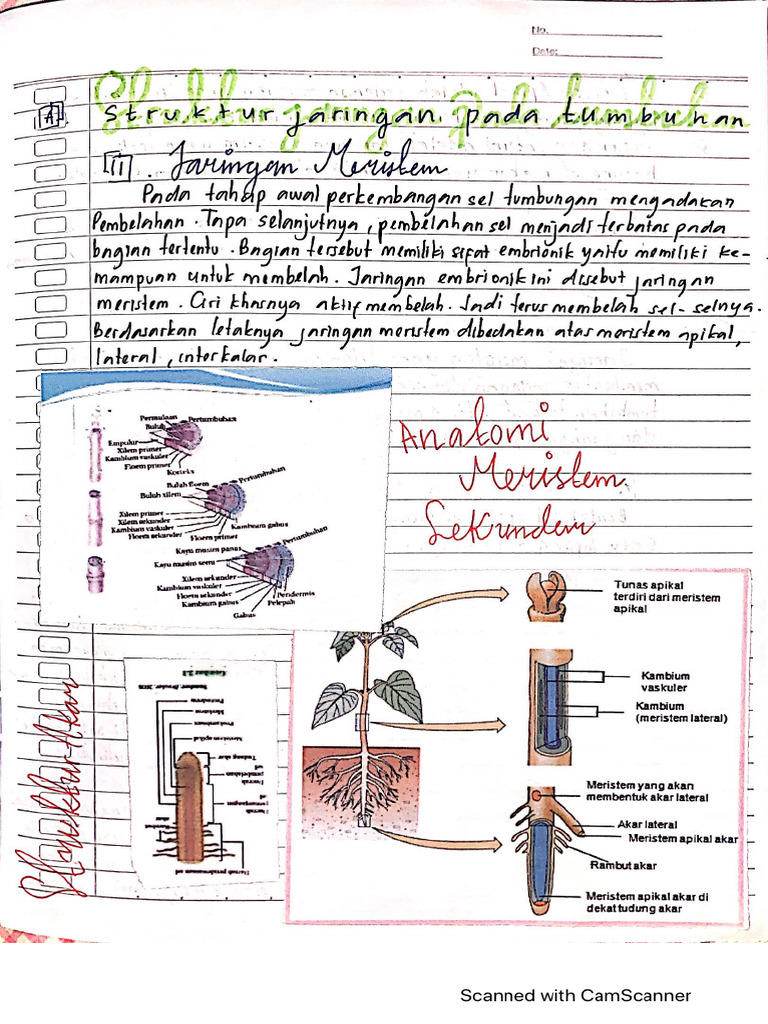 No.
Date:
A Struktur jaringan pada tumbuhan
1 Jaringan Meristem
Pada tahap awal perkembangan sel tumbungan mengadakan
Pembelahan. Tapa selanjutnya, pembelahan sel menjadi terbatas pada
bagian tertentu. Bagian tersebut memiliki sifat embrionik yaitu memiliki ke-
mampuan untuk membelah. Jaringan embrionik ini disebut jaringan
meristem. Ciri khasnya aktif membelah. Jadi terus membelah sel-selnya.
Berdasarkan letaknya jaringan meristem dibedakan atas meristem apikal,
lateral, interkalar.
Permulaan Pertumbuhan
Buluh
Empulur
Xilem primer
Kambium vaskuler
Floem primer
Korteks
Buluh floem Pertumbuhan
Buluh xilem
Xilem primer
Xilem sekunder
Kambium vaskuler
Floem sekunder
Floem primer
Kambium gabus
Pertumbuhan
Kayu musim panas
Kayu musim semi
Xilem sekunder
Kambium vaskuler
Floem sekunder
Kambium gabus
Peridermis
Pelepah
Gabus
Anatomi
Meristem
Sekunder
Tunas apikal
terdiri dari meristem
apikal
Kambium
vaskuler
Kambium
(meristem lateral)
Meristem yang akan
membentuk akar lateral
Akar lateral
Meristem apikal akar
Rambut akar
Meristem apikal akar di
dekat tudung akar
Struktur Akar
Gambar 2.1
Meristem apikal
Tudung akar
Daerah
pembelahan
sel
Daerah
pemanjangan
sel
Scanned with CamScanner